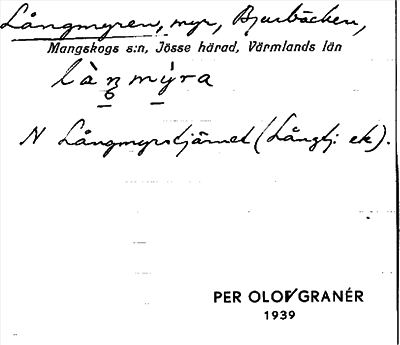 Långmyren, myr, Bjurbäcken,
Mangskogs s:n, Jösse härad, Värmlands län
làŋmy̌ra
N Långmyrstjärnet (Långtj. ek).
PER OLOF GRANÉR
1939